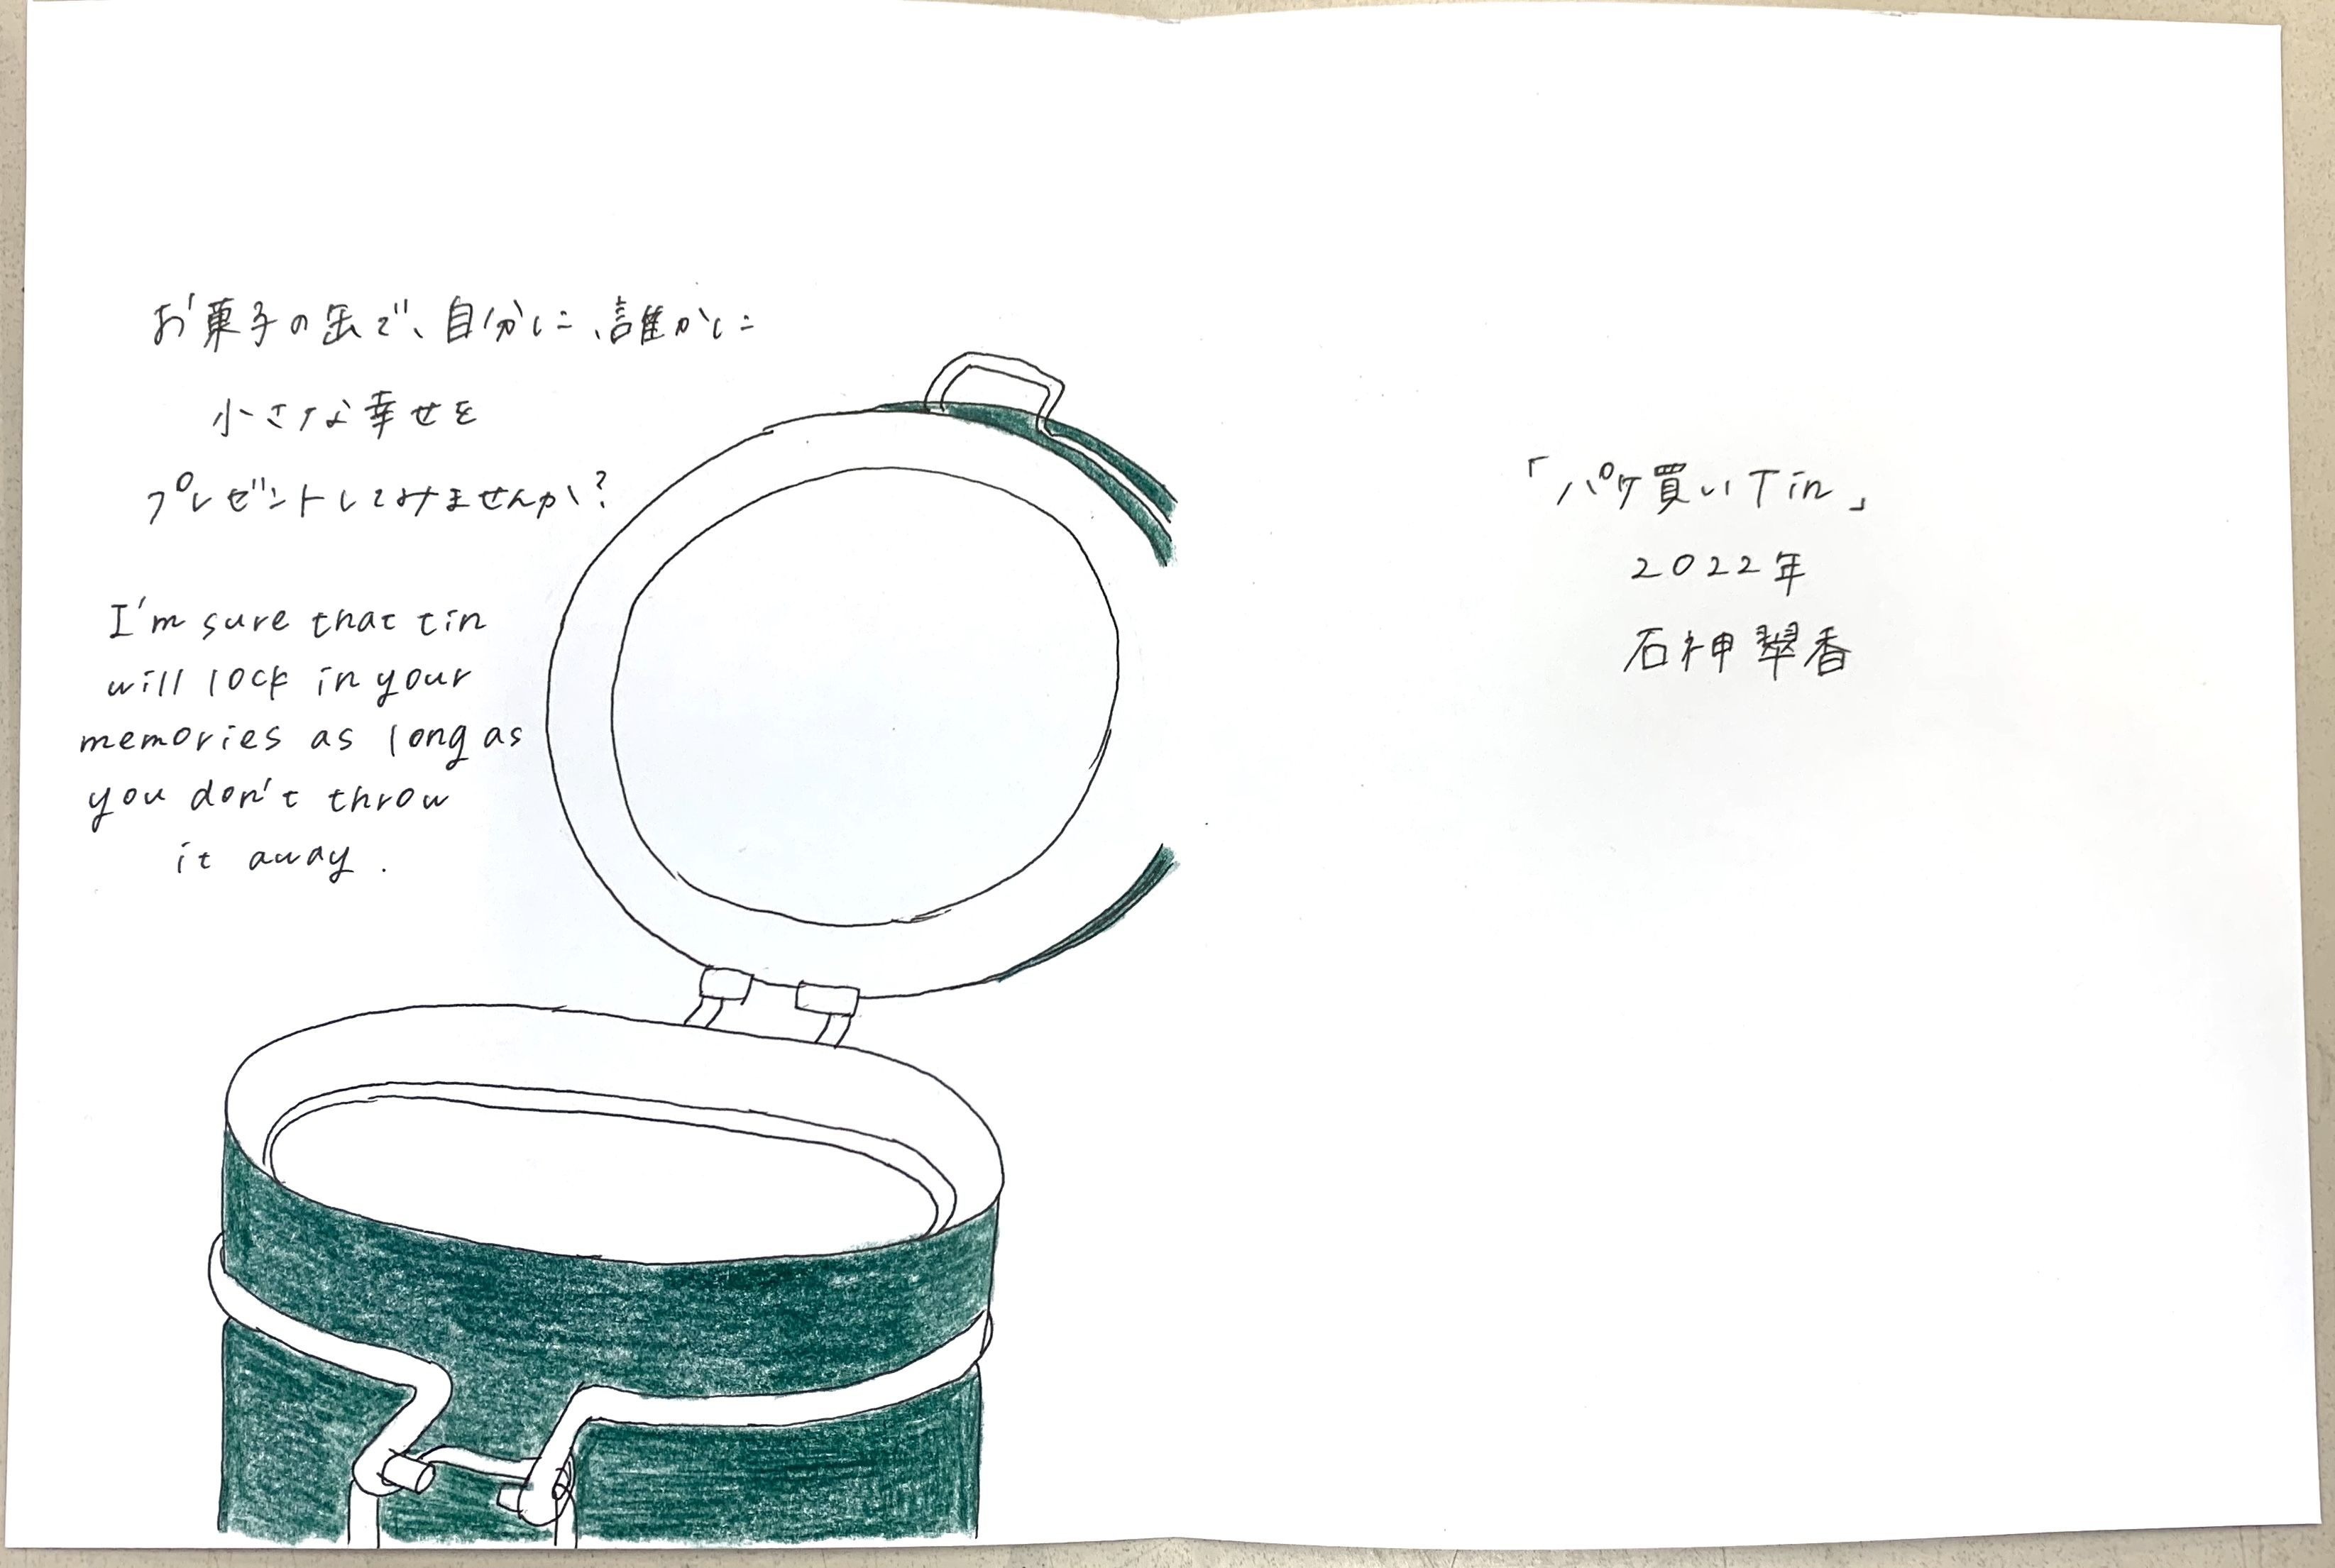 お菓子の缶で、自分に、誰かに
小さな幸せを
プレゼントしてみませんか?
I'm sure that tin
will lock in your
memories as long as
you don't throw
it away.
「パケ買いTin」
2022年
石神翠香